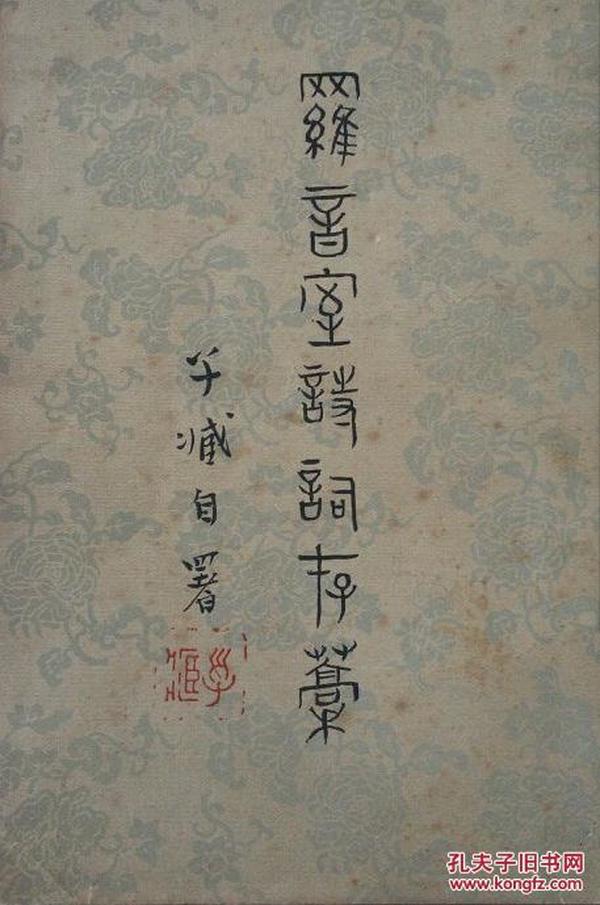 羅音室詩詞存藁
子臧自署
孔夫子旧书网
www.kongfz.com